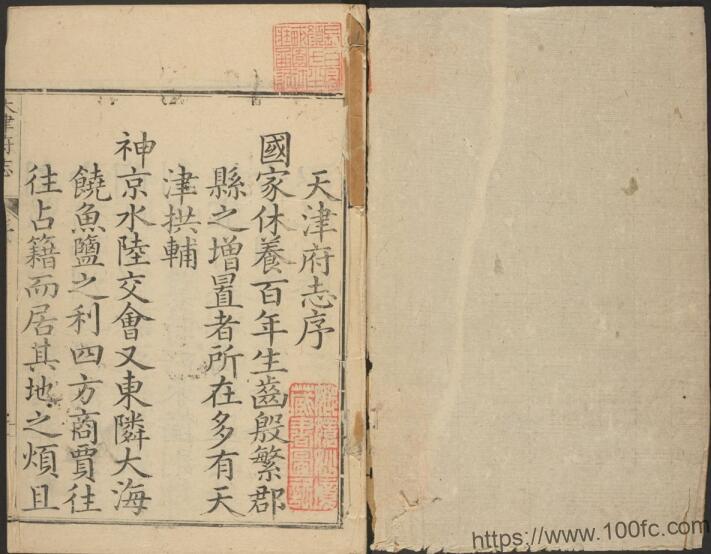 天津府志序
國家休養百年生齒殷繁郡
縣之增置者所在多有天
津拱輔
神京水陸交會又東隣大海
饒魚鹽之利四方商賈往
往占籍而居其地之煩且
津府志
https://www.100fc.com